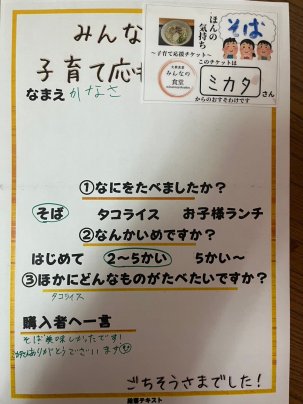 みんな
子育て応
なまえ かなさ
ほんの
気持ち
そば
～子育て応援チケット～
このチケットは
みんなの
食堂
ミカタ さん
からのおすそわけです
①なにをたべましたか？
そば タコライス お子様ランチ
②なんかいめですか？
はじめて 2～5かい 5かい～
③ほかにどんなものがたべたいですか？
タコライス
購入者へ一言
そば美味しかったです!
ありがとうございます
ごちそうさまでした！